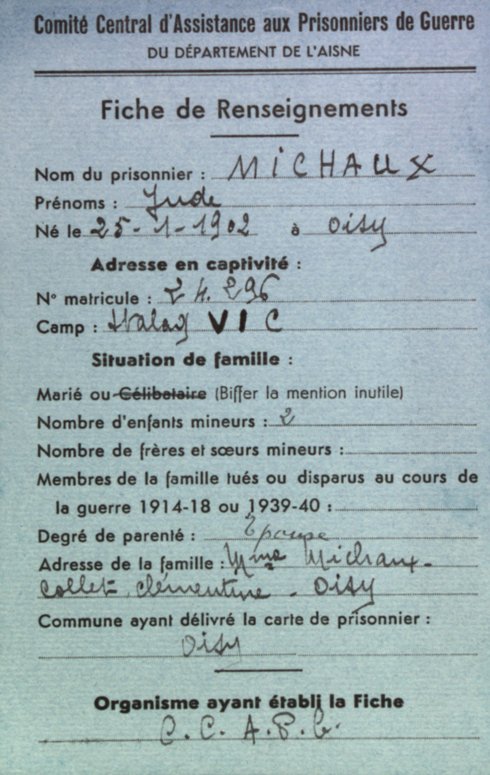 Comité Central d'Assistance aux Prisonniers de Guerre
DU DÉPARTEMENT DE L'AISNE
Fiche de Renseignements
Nom du prisonnier : MICHAUX
Prénoms : Jude
Né le 25-1-1902 à Oisy
Adresse en captivité :
N° matricule : 24.296
Camp : Stalag VI C
Situation de famille :
Marié ou Célibataire (Biffer la mention inutile)
Nombre d'enfants mineurs : 2
Nombre de frères et sœurs mineurs :
Membres de la famille tués ou disparus au cours de
la guerre 1914-18 ou 1939-40 :
Degré de parenté : Epouse
Adresse de la famille : Mme Michaux-
Collet Clémentine - Oisy
Commune ayant délivré la carte de prisonnier :
Oisy
Organisme ayant établi la Fiche
C.C.A.P.G.